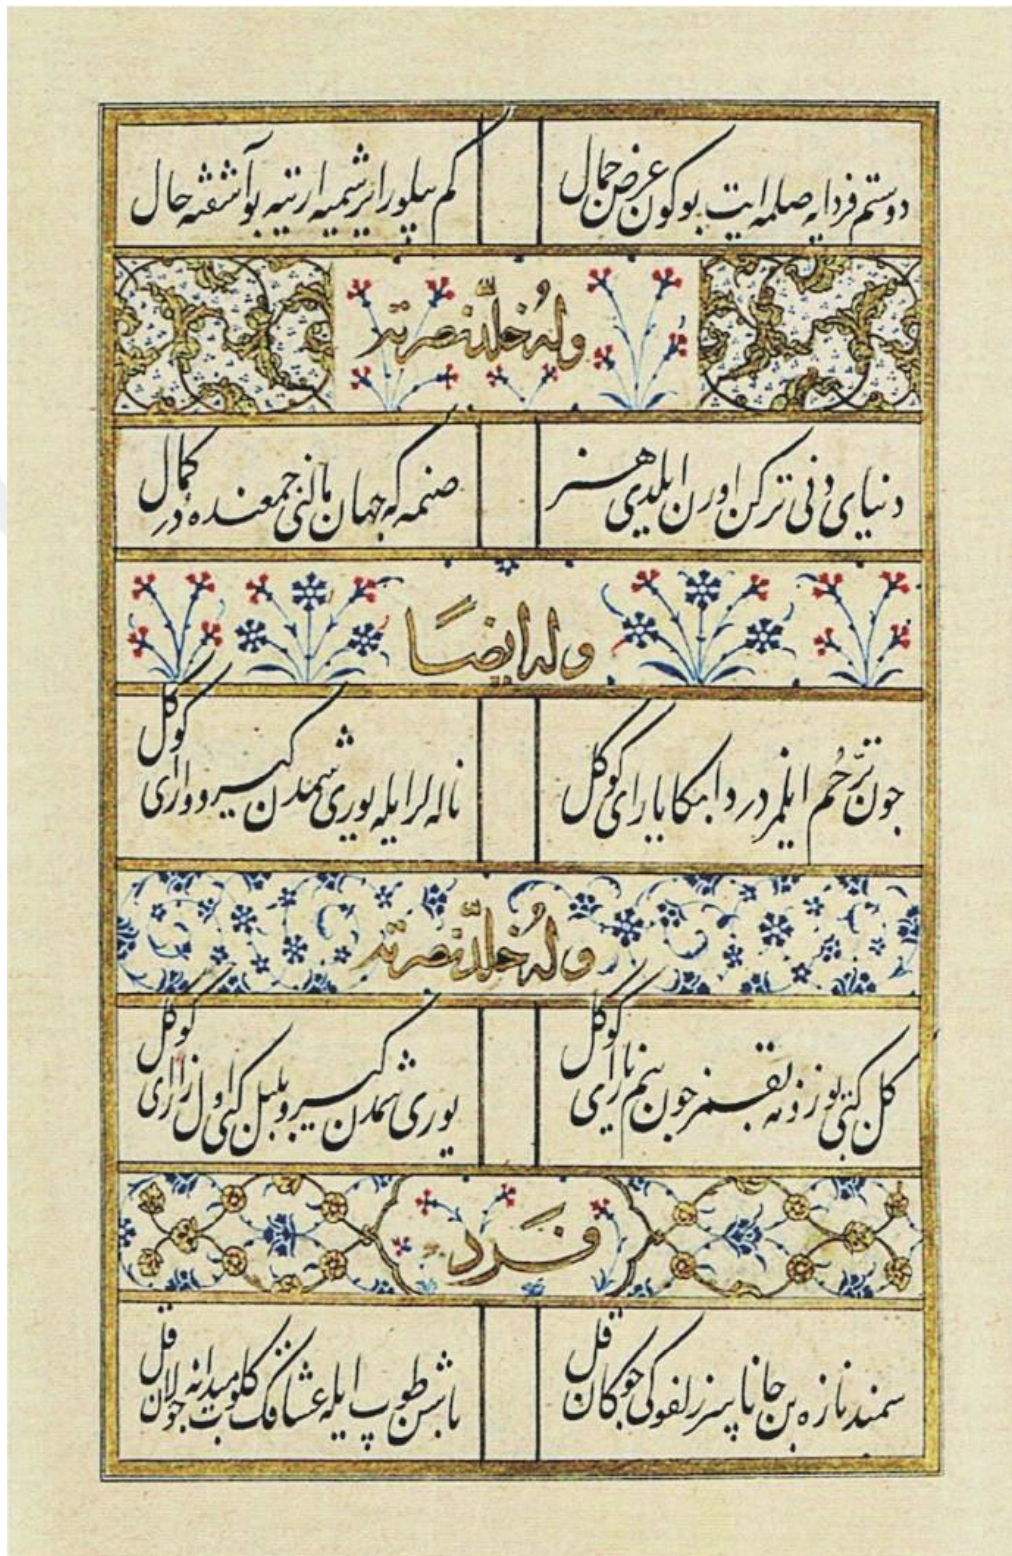 دوستم فردایه صلمه ایت بوکون عرض جمال
کم بیلور ایرشمیه ارتیه بو آشفته حال
وله خلّد نصرته
دنیای دنی ترکن اورن ایلدی هنر
صنمه که جهان مالنی جمعنده در کمال
وله ایضاً
جون ترحّم ایلمز دردا بکا یار ای کوکل
ناله لر ایله یوری شمدن کیرو وار ای کوکل
وله خلّد نصرته
کل کبی یوزونه بقمز جون بنم یار ای کوکل
یوری شمدن کیرو بلبل کبی اول زار ای کوکل
فرد
سمند نازه بن جانا پس زلفوکی جوکان قل
باشن طوپ ایله عشاقک کلوب میدانه جولان قل